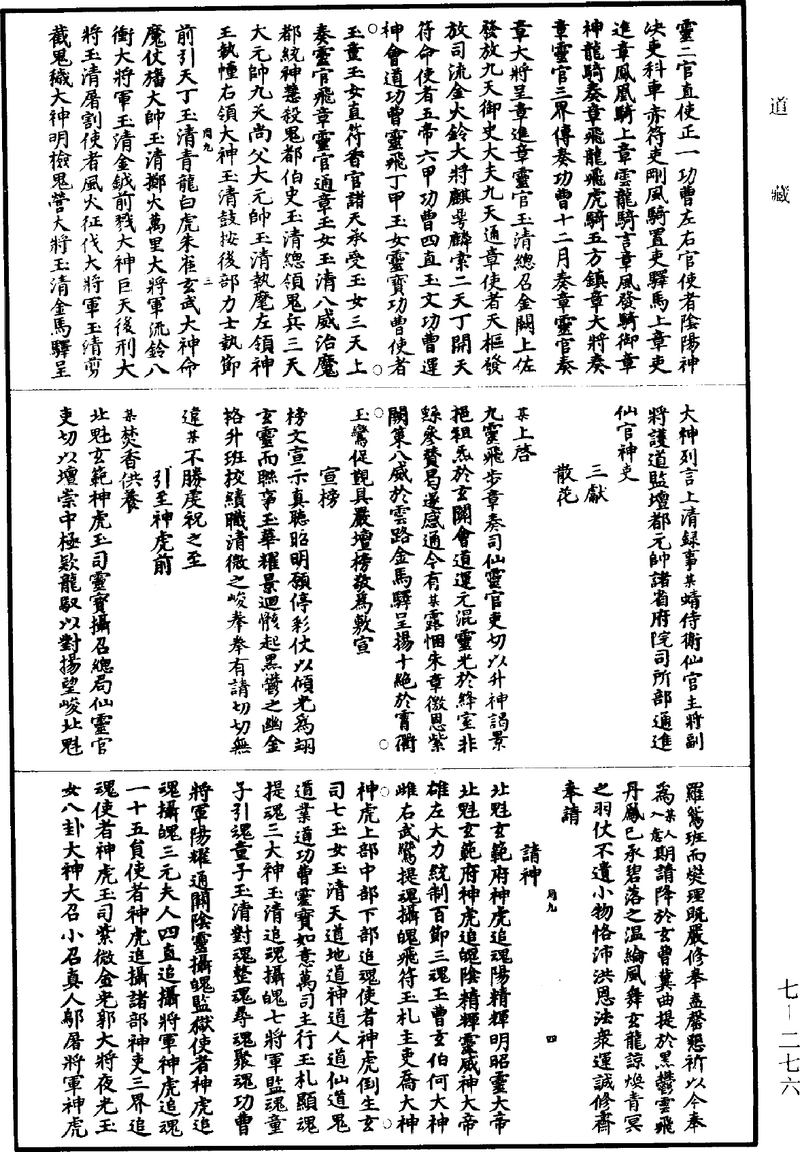 道藏
靈二官直使正一功曹左右官使者陰陽神
決吏科車赤符吏剛風騎置吏驛馬上章吏
進章鳳凰騎上章雲龍騎言章風發騎御章
神龍騎奏章飛龍飛虎騎五方鎮章大將奏
章靈官三界傳奏功曹十二月奏章靈官奏
章大將呈章進章靈官玉清總召金闕上佐
發放九天御史大夫九天通章使者天樞發
放司流金火鈴大將麒麟索二天丁開天
符命使者五帝六甲功曹四直玉文功曹運
神會道功曹靈飛丁甲玉女靈寶功曹使者
玉童玉女直符香官諸天承受玉女三天上
奏靈官飛章靈官通章玉女玉清八威治魔
都統神慧殺鬼都伯史玉清總領鬼兵三天
大元帥九天尚父大元帥玉清執麾左領神
王執幢右領大神玉清鼓按後部力士執節
前引天丁玉清青龍白虎朱雀玄武大神命
魔仗旛大帥玉清擲火萬里大將軍流鈴八
衝大將軍玉清金鉞前戮大神巨天後刑大
將玉清屠割使者風火征伐大將軍玉清剪
截鬼穢大神明檢鬼營大將玉清金馬驛呈
大神列言上清錄事某蜻侍衛仙官主將副
將護道監壇都元帥諸省府院司所部通進
仙官神吏
三獻
散花
某上啓
九靈飛步章奏司仙靈官吏切以升神謁景
挹祖炁於玄關會道運元混靈光於絳室非
繇參贊曷遂感通今有某露悃朱章徼恩紫
闕策八威於雲路金馬驛呈揚十絕於霄衢
玉鸞促覲具嚴壇榜敬爲敷宣
宣榜
榜文宣示真聽昭明願停彩仗以傾光爲翊
玄靈而聮事玉華耀景迴骸起黑鬱之幽金
格升班校績職清微之峻拳拳有請切切無
違某不勝虔祝之至
引至神虎前
某焚香供養
北魁玄範神虎玉司靈寶攝召總局仙靈官
吏切以壇崇中極欵龍馭以對揚望峻北魁
羅鴛班而燮理既嚴修奉盍罄懇祈以今奉
爲某人入意期請降於玄曹冀曲提於黑鬱雲飛
丹鳳已承碧落之温綸風舞玄龍諒煥青冥
之羽仗不遺小物恪沛洪恩法衆運誠修齋
奉請
請神
北魁玄範府神虎追魂陽精輝明昭靈大帝
北魁玄範府神虎追魄陰精輝靈威神大帝
雄左大力統制百節三魂玉曹玄伯何大神
雌右武鷩提魂攝魄飛符玉札主吏喬大神
神虎上部中部下部追魂使者神虎倒生玄
司七玉女玉清天道地道神道人道仙道鬼
道業道功曹靈寶如意萬司主行玉札顯魂
提魂三大神玉清追魂攝魄七將軍監魂童
子引魂童子玉清對魂整魂尋魂聚魂功曹
將軍陽耀通關陰靈攝魄監獄使者神虎追
魂攝魄三元夫人四直追攝將軍神虎追魂
一十五員使者神虎追攝諸部神吏三界追
魂使者神虎玉司紫微金光郭大將夜光玉
女八卦大神大召小召真人鄔屠將軍神虎
四
七—二七六